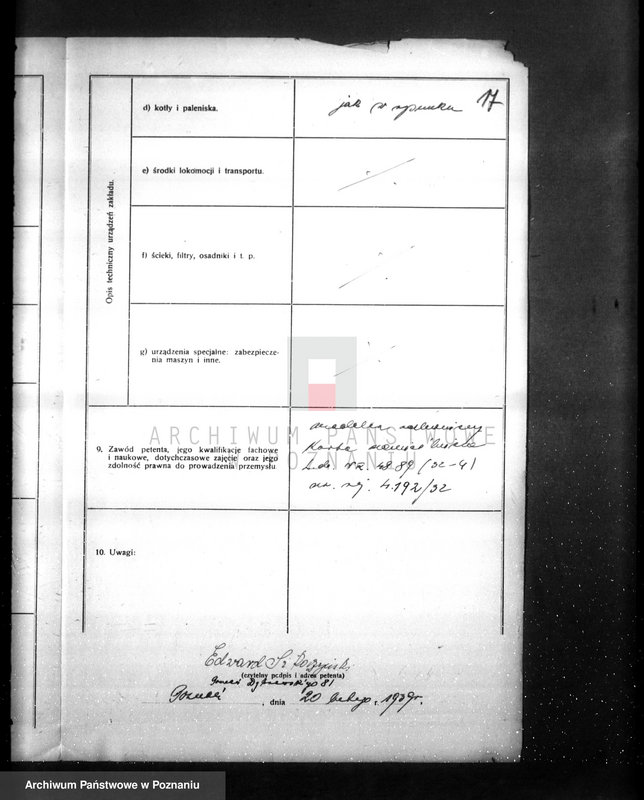 17
Opis techniczny urządzeń zakładu.
d) kotły i paleniska.
jak w
e) środki lokomocji i transportu.
f) ścieki, filtry, osadniki i t. p.
g) urządzenia specjalne: zabezpiecze-
nia maszyn i inne.
ARCHIWUM PAŃSTWOWE
W POZNANIU
9. Zawód petenta, jego kwalifikacje fachowe
i naukowe, dotychczasowe zajęcie oraz jego
zdolność prawna do prowadzenia przemysłu.
Karta
L. dz. 4889 (32-4)
nr. rej. 4.192/32
10. Uwagi:
Edward
(czytelny podpis i adres petenta)
Dąbrowskiego 81
Poznań, dnia 20 lutego r. 1939 r.
Archiwum Państwowe w Poznaniu